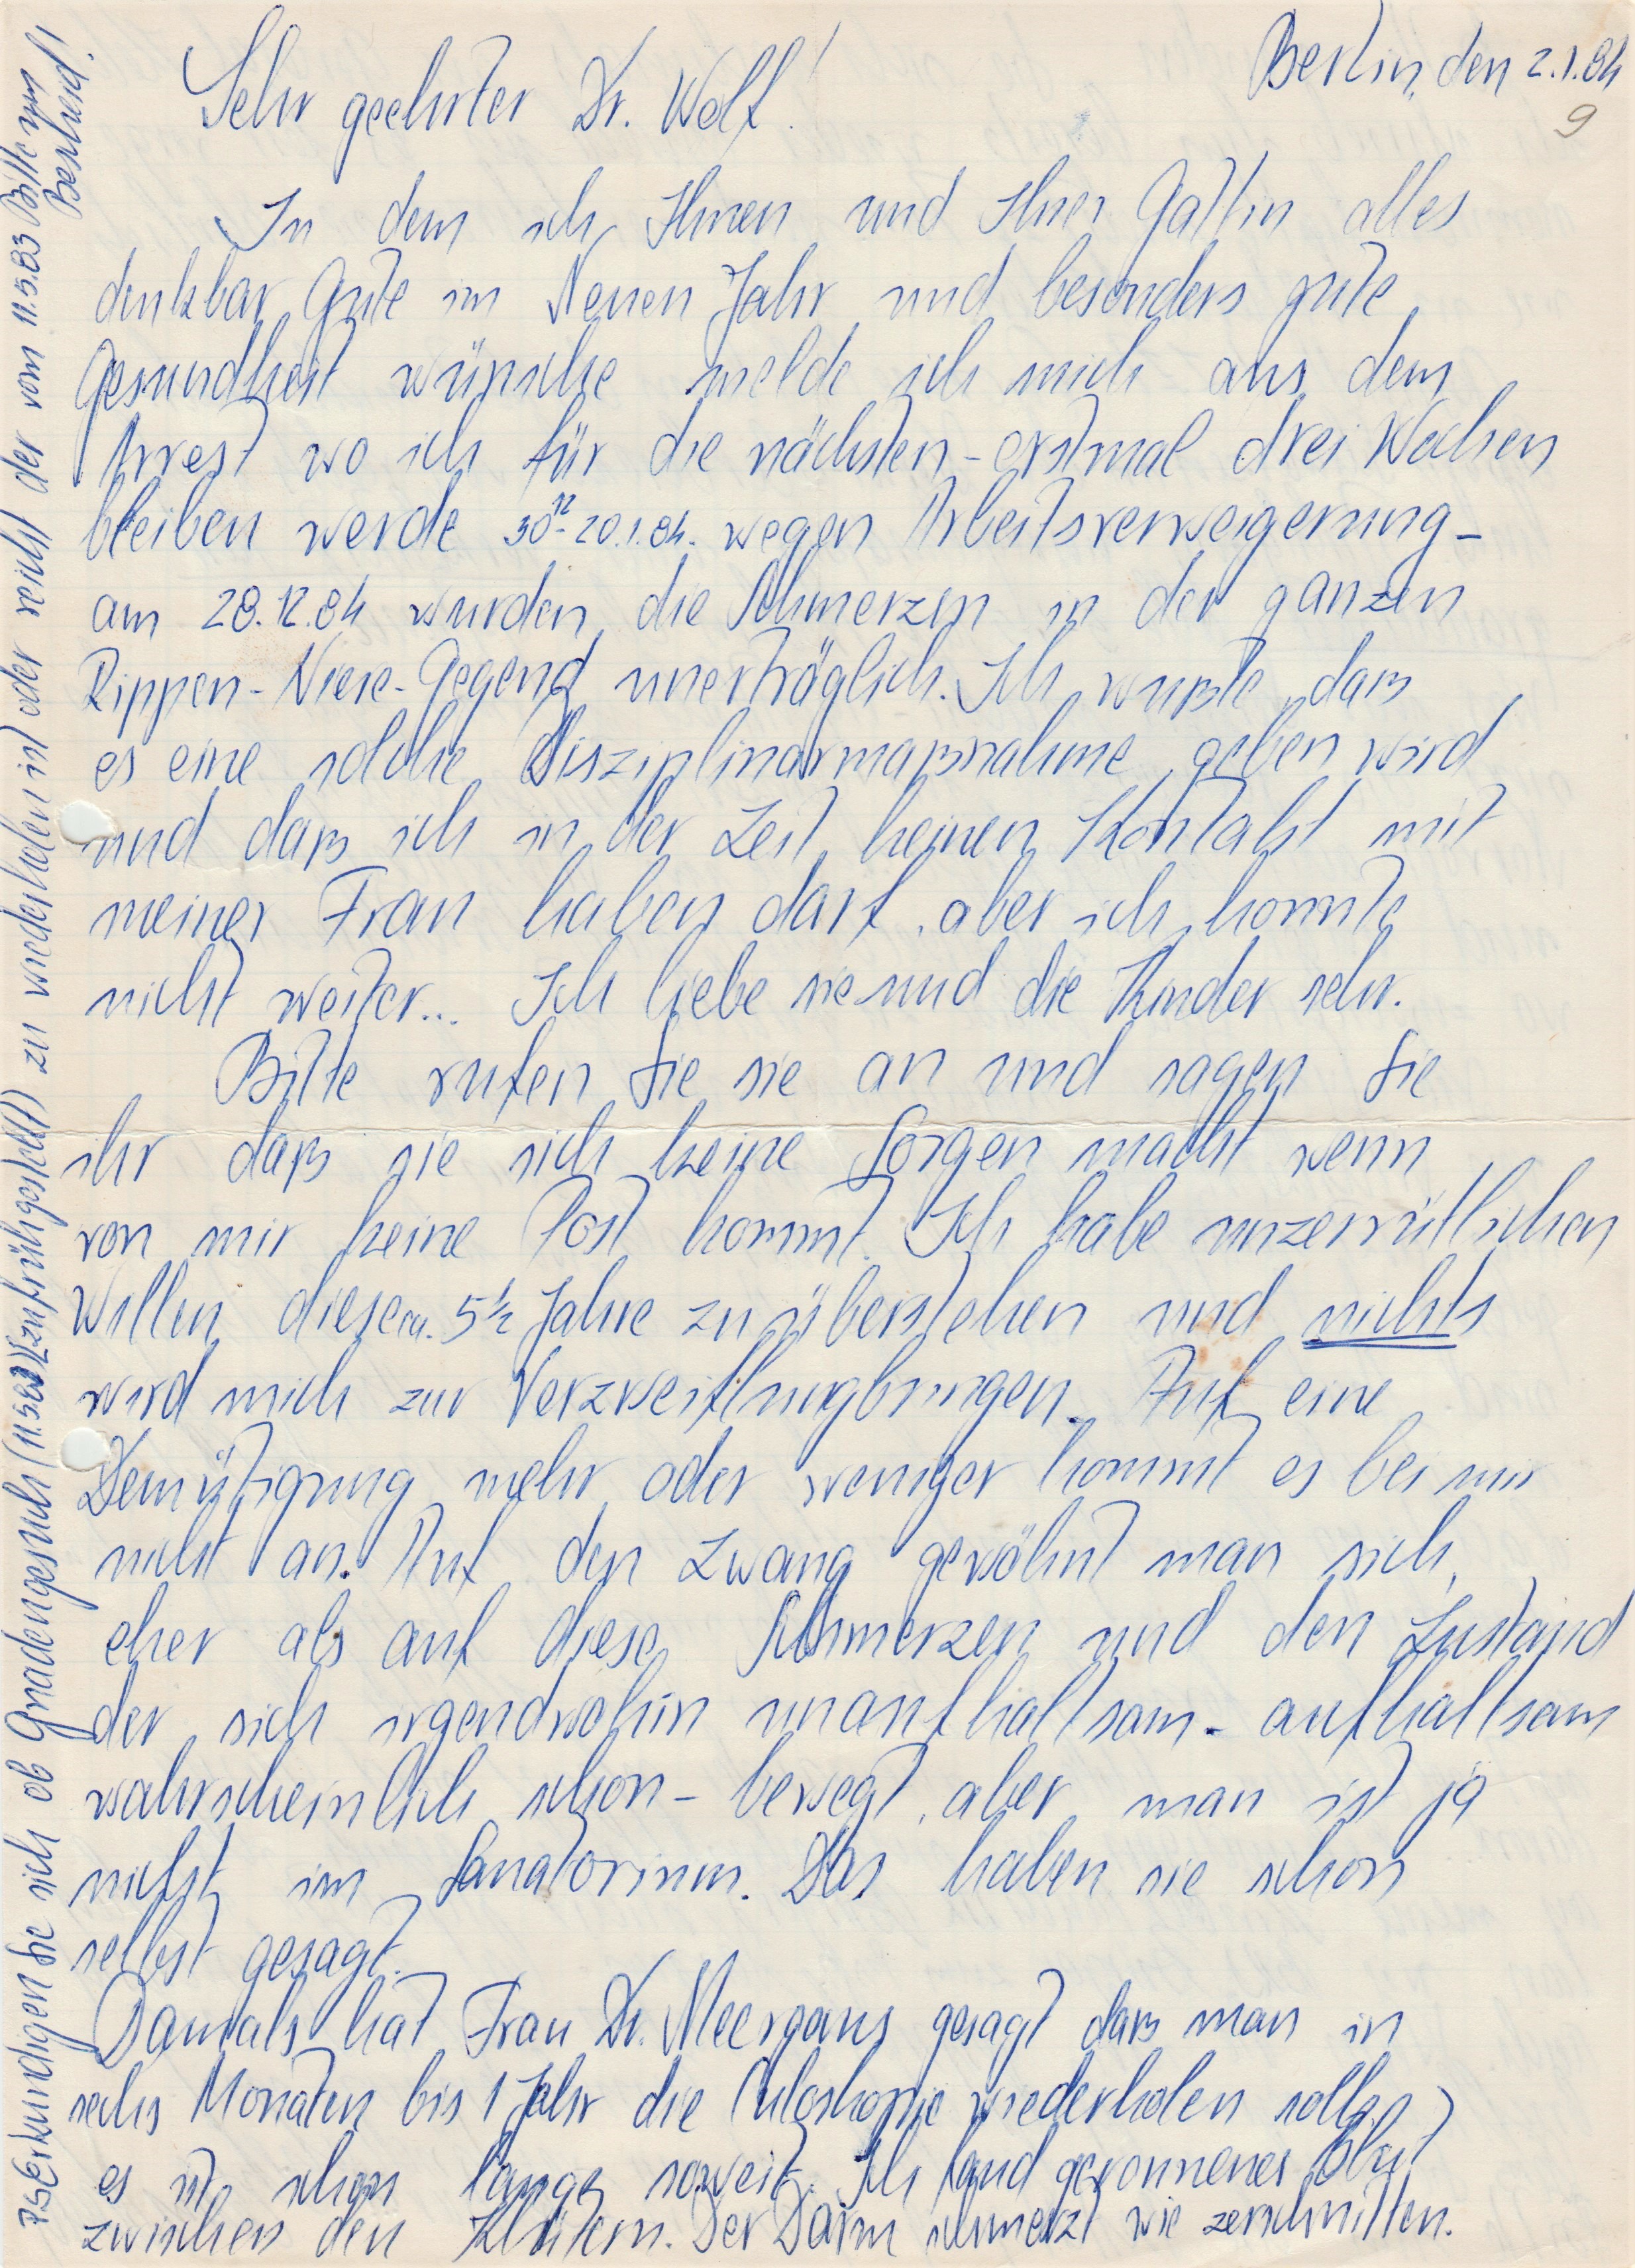 Berlin, den 2.1.84
9
Sehr geehrter Dr. Wolf!
In dem ich Ihnen und Ihrer Gattin alles
denkbar Gute im Neuen Jahr und besonders gute
Gesundheit wünsche melde ich mich aus dem
Arrest wo ich für die nächsten - erstmal drei Wochen
bleiben werde 30.12-20.1.84. wegen Arbeitsverweigerung -
am 28.12.84 wurden die Schmerzen in der ganzen
Rippen-Niere-Gegend unerträglich. Ich wußte daß
es eine solche Disziplinarmaßnahme geben wird
und daß ich in der Zeit keinen Kontakt mit
meiner Frau haben darf, aber ich konnte
nicht weiter... Ich liebe sie und die Kinder sehr.
Bitte rufen Sie sie an und sagen Sie
ihr daß sie sich keine Sorgen macht wenn
von mir keine Post kommt. Ich habe unzerrüttlichen
Willen diese ca. 5 1/2 Jahre zu überstehen und nichts
wird mich zur Verzweiflung bringen. Auf eine
Demütigung mehr oder weniger kommt es bei mir
nicht an. Auf den Zwang gewöhnt man sich,
eher als auf diese Schmerzen und den Zustand
der sich irgendwohin unaufhaltsam - aufhaltsam
wahrscheinlich schon - bewegt, aber man ist ja
nicht im Sanatorium. Das haben sie schon
selbst gesagt.
Damals hat Frau Dr. Meergans gesagt daß man in
sechs Monaten bis 1 Jahr die wiederholen solle,
es ist schon lange soweit. Ich fand geronnenes Blut
zwischen den. Der Darm schmerzt wie zerschnitten.
PS Erkundigen Sie sich ob Gnadengesuch (11.5.83) (zu früh gestellt) zu wiederholen ist oder reicht der vom 11.5.83 Bitte um
Bescheid!